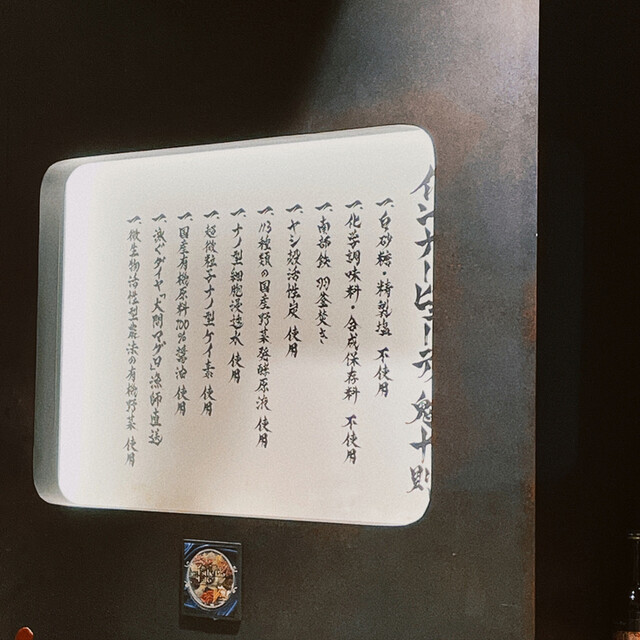 インナービューティ 魚十則
一、白砂糖・精製塩 不使用
一、化学調味料・合成保存料 不使用
一、南部鉄 羽釜焚き
一、ヤシ殻活性炭 使用
一、113種類の国産野菜発酵原液 使用
一、ナノ型細胞浸透水 使用
一、超微粒子ナノ型ケイ素 使用
一、国産有機原料100%醤油 使用
一、泳ぐダイヤ「大間マグロ」漁師直送
一、微生物活性型農法の有機野菜 使用